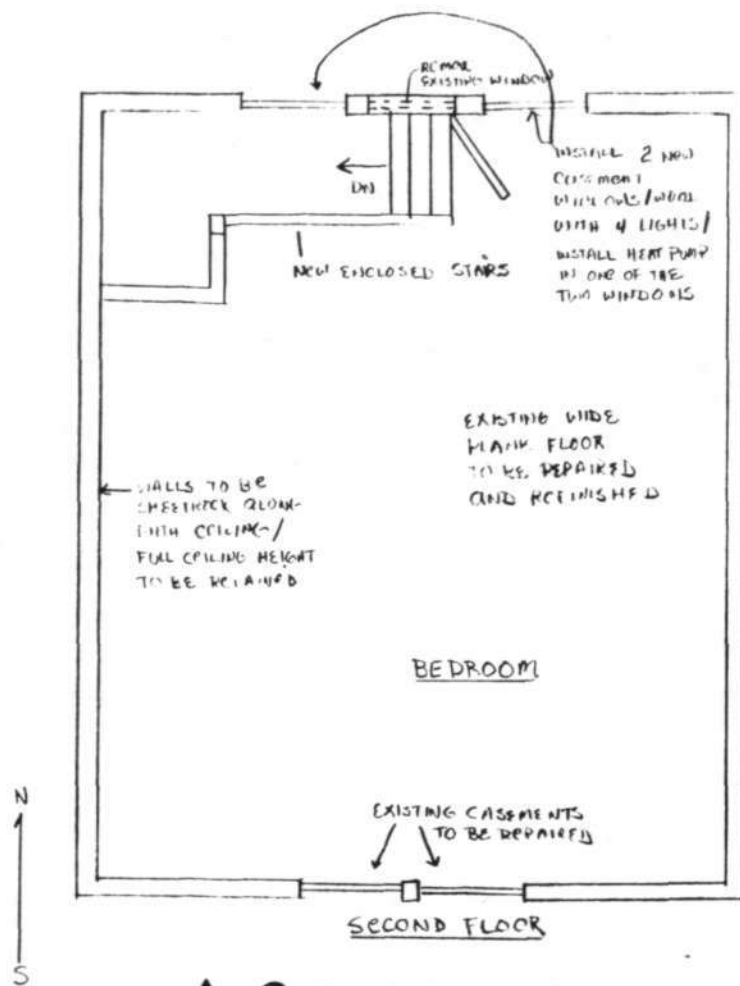 EXISTING WINDOW
INSTALL 2 NEW
CASEMENT
WITH 4 LIGHTS/
INSTALL HEAT PUMP
IN ONE OF THE
TWO WINDOWS
DN
NEW ENCLOSED STAIRS
EXISTING WIDE
PLANK FLOOR
TO BE REPAIRED
AND REFINISHED
WALLS TO BE
SHEETROCK ALONG
WITH CEILING/
FULL CEILING HEIGHT
TO BE RETAINED
BEDROOM
N
EXISTING CASEMENTS
TO BE REPAIRED
SECOND FLOOR
S